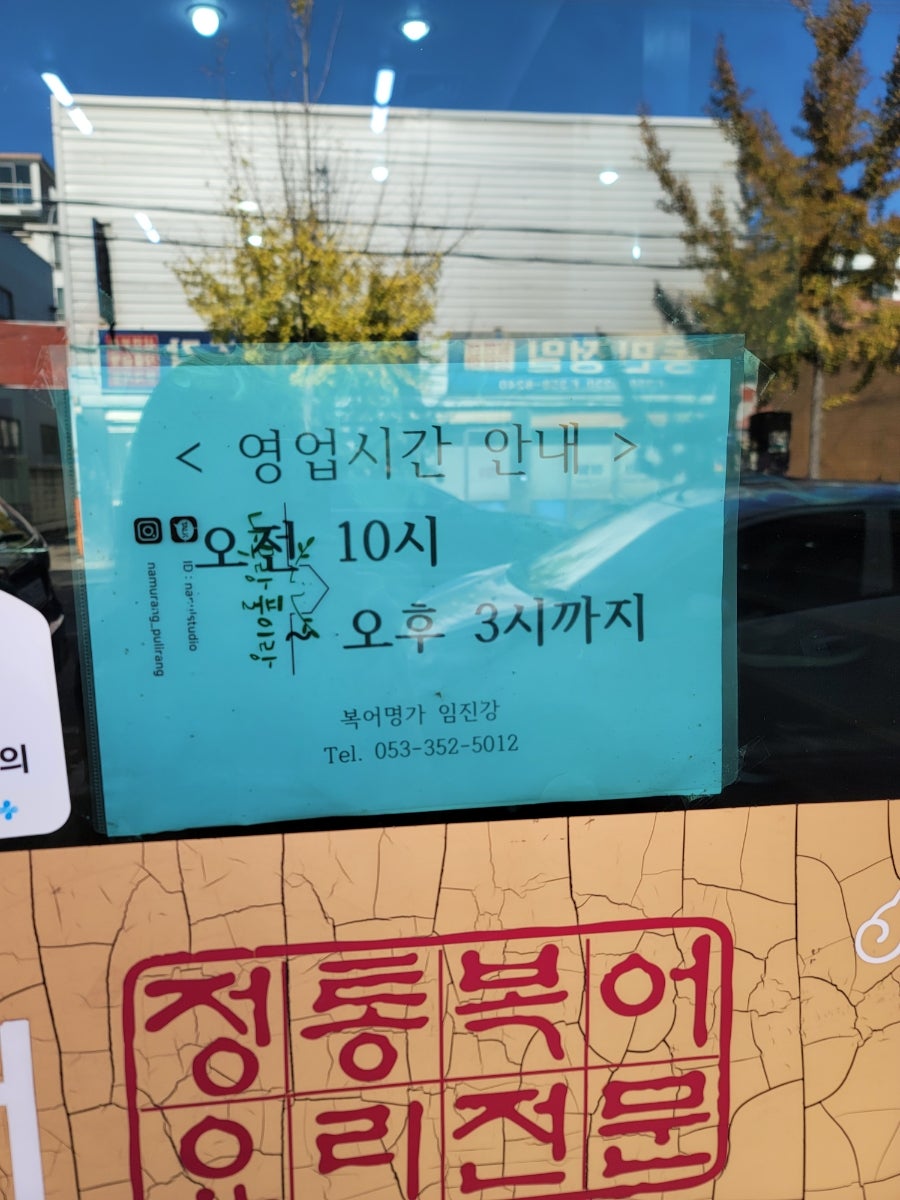 < 영업시간 안내 >
오전 10시
오후 3시까지
복어명가 임진강
Tel. 053-352-5012
namurang_pulirang
나무랑풀이랑
의
정통복어
요리전문